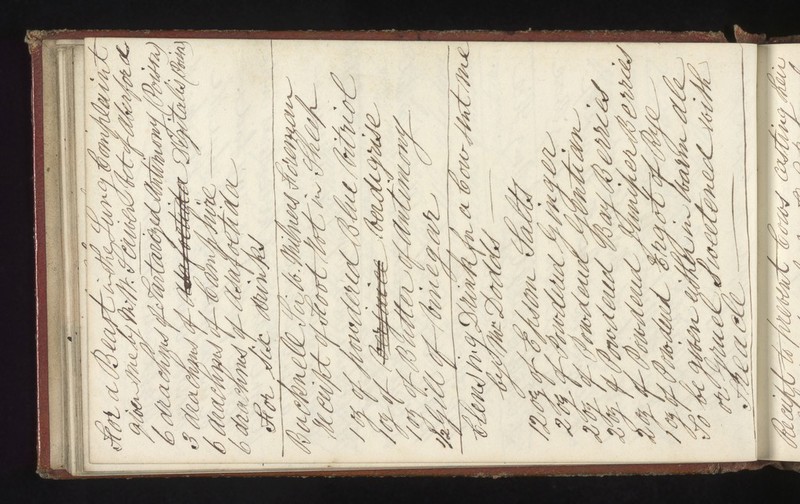 For a Beast in the Lung Complaint
given me by Mr W. Scriven Vet of Aherford
6 drachms of Tartarized Antimony (Poison)
3 drachms of Digitalis (Poison)
6 drachms of Camphire
6 drachms of Asafotida
For Six Drinks
Bucknell Vicib. Foreman
Receipt of Foot Rot in Sheep
1 oz of powderd Blue Vitriol
1 oz of Verdigrise
1 oz of Butter of Antimony
1/2 Gill of Vinegar
Clensing Drink for a Cow Sent me
by Mr Dodds
12 oz of Epsom Salts
2 oz of Powderd Ginger
2 oz of Powderd Gentian
2 oz of Powderd Bay Berries
2 oz of Powderd Juniper Berries
1 oz of Powderd Ergot of Rye
To be given either in warm ale
or Gruel Sweetened with
Treacle
Receipt to prevent Cows casting their